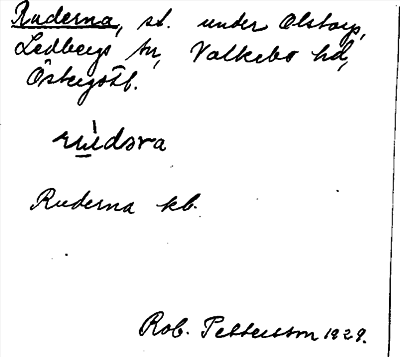 Ruderna, st. under Olstorp,
Ledbergs sn, Valkebo hd,
Östergötl.
Ruderna kb.
Rob. Pettersson 1929.